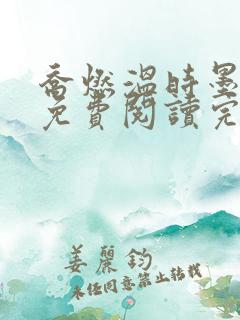 喬燃溫時墨
免費閱讀完
姜麗鈞
未经同意禁止转载